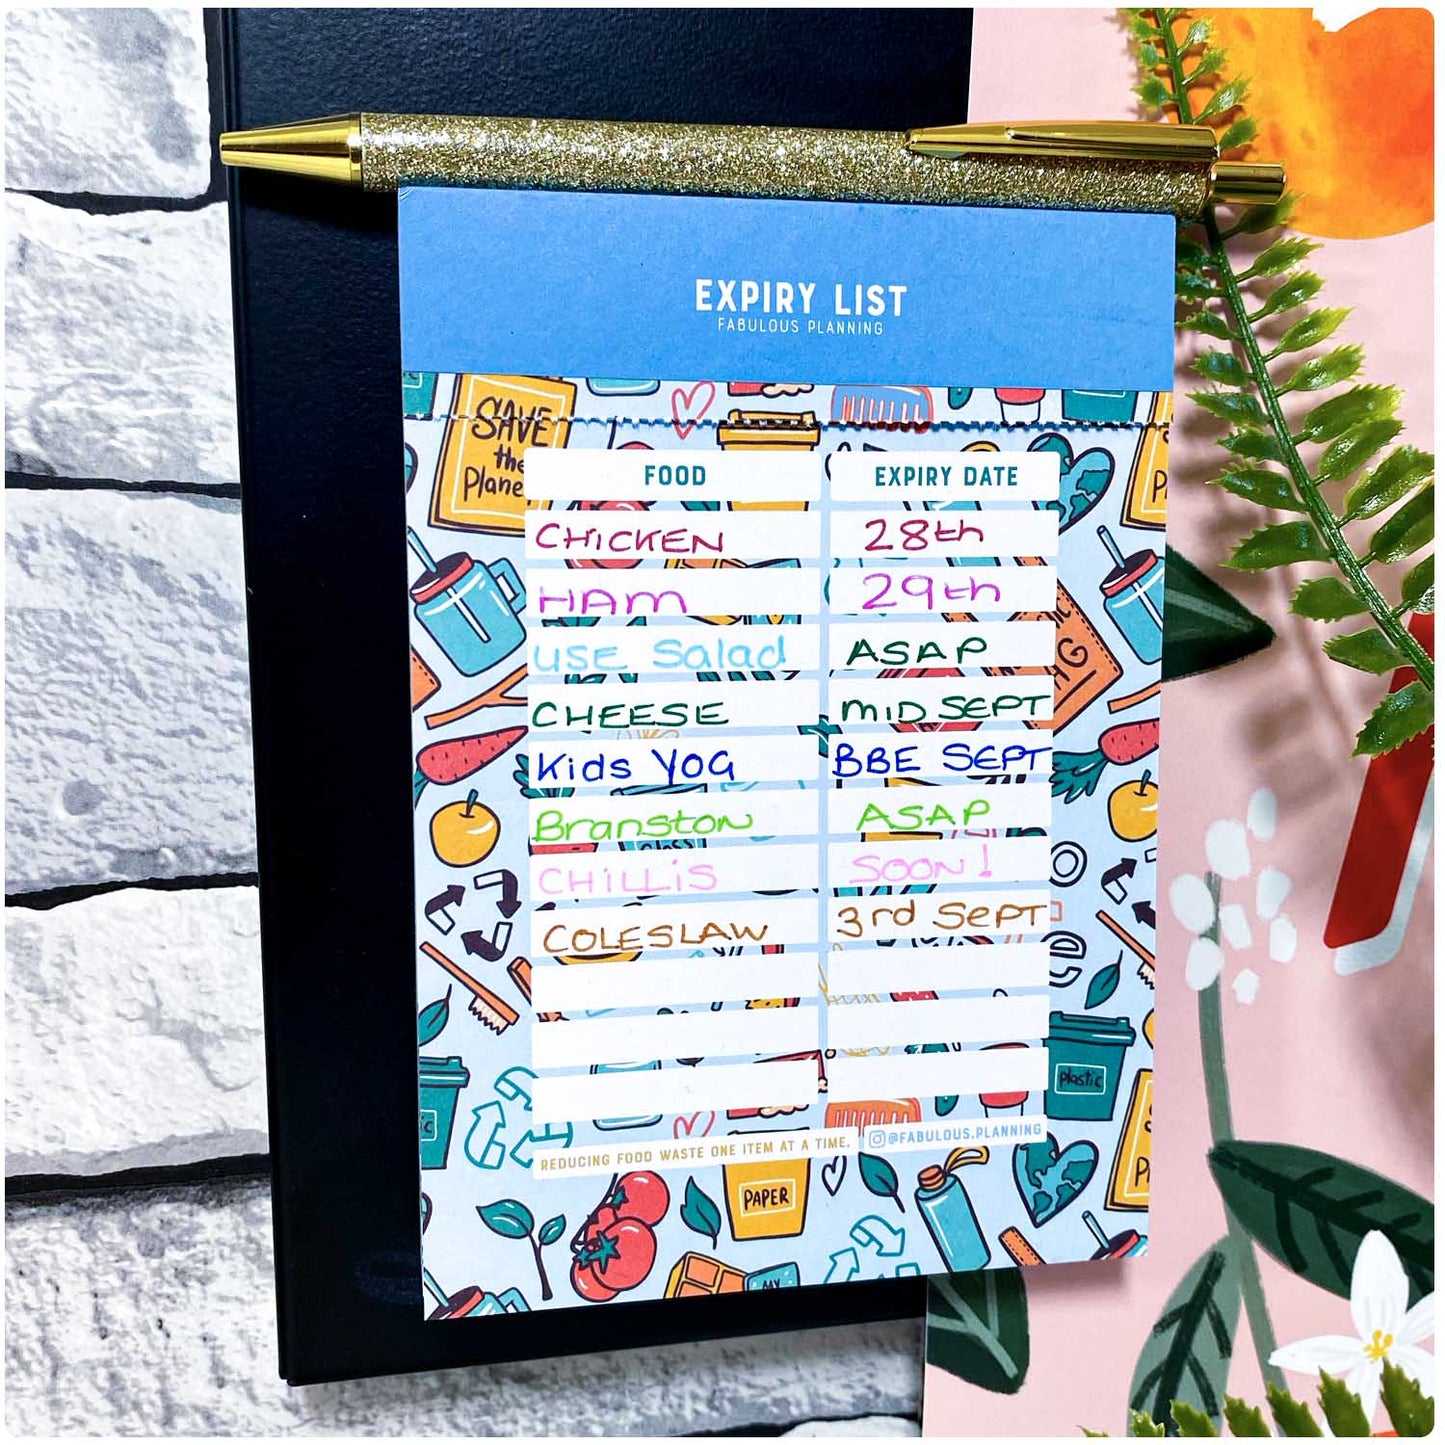 EXPIRY LIST
FABULOUS PLANNING
SAVE
the
Plane
FOOD EXPIRY DATE
CHICKEN 28th
HAM 29th
USE Salad ASAP
CHEESE MID SEPT
Kids YOG BBE SEPT
Branston ASAP
CHILLIS SOON!
COLESLAW 3rd SEPT
Plastic
REDUCING FOOD WASTE ONE ITEM AT A TIME. @FABULOUS.PLANNING
PAPER
MY